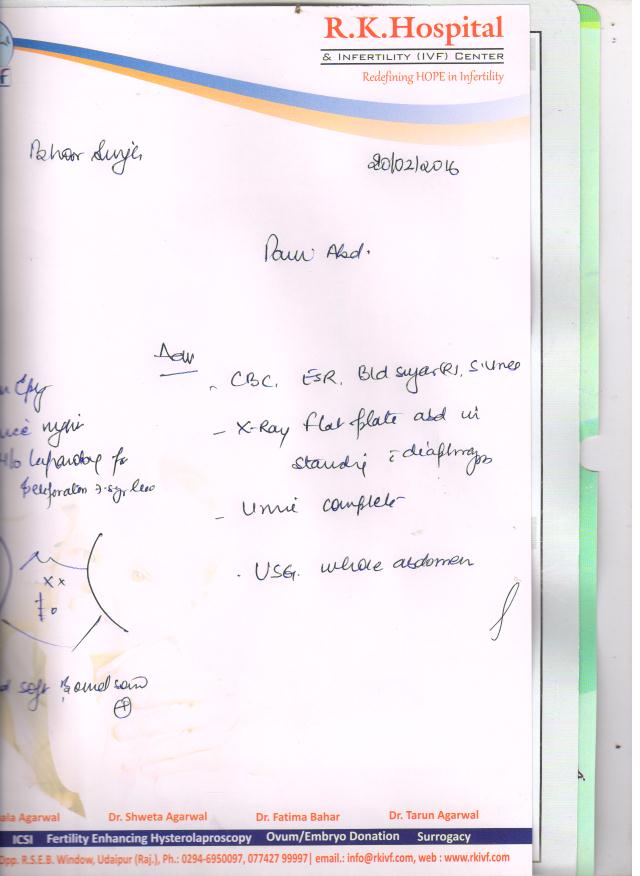 R.K.Hospital
& INFERTILITY (IVF) CENTER
Redefining HOPE in Infertility
20/02/2016
Pain Abd.
Adv
- CBC, ESR, Bld sugar(R), S. Urea
- X-Ray flat plate abd in
standing c diaphragm
- Urine complete
- USG. whole abdomen
Epg
since night
H/o laparotomy for
perforation
x x
soft
+
ala Agarwal Dr. Shweta Agarwal Dr. Fatima Bahar Dr. Tarun Agarwal
ICSI Fertility Enhancing Hysterolaproscopy Ovum/Embryo Donation Surrogacy
Opp. R.S.E.B. Window, Udaipur (Raj.), Ph.: 0294-6950097, 077427 99997| email.: info@rkivf.com, web : www.rkivf.com